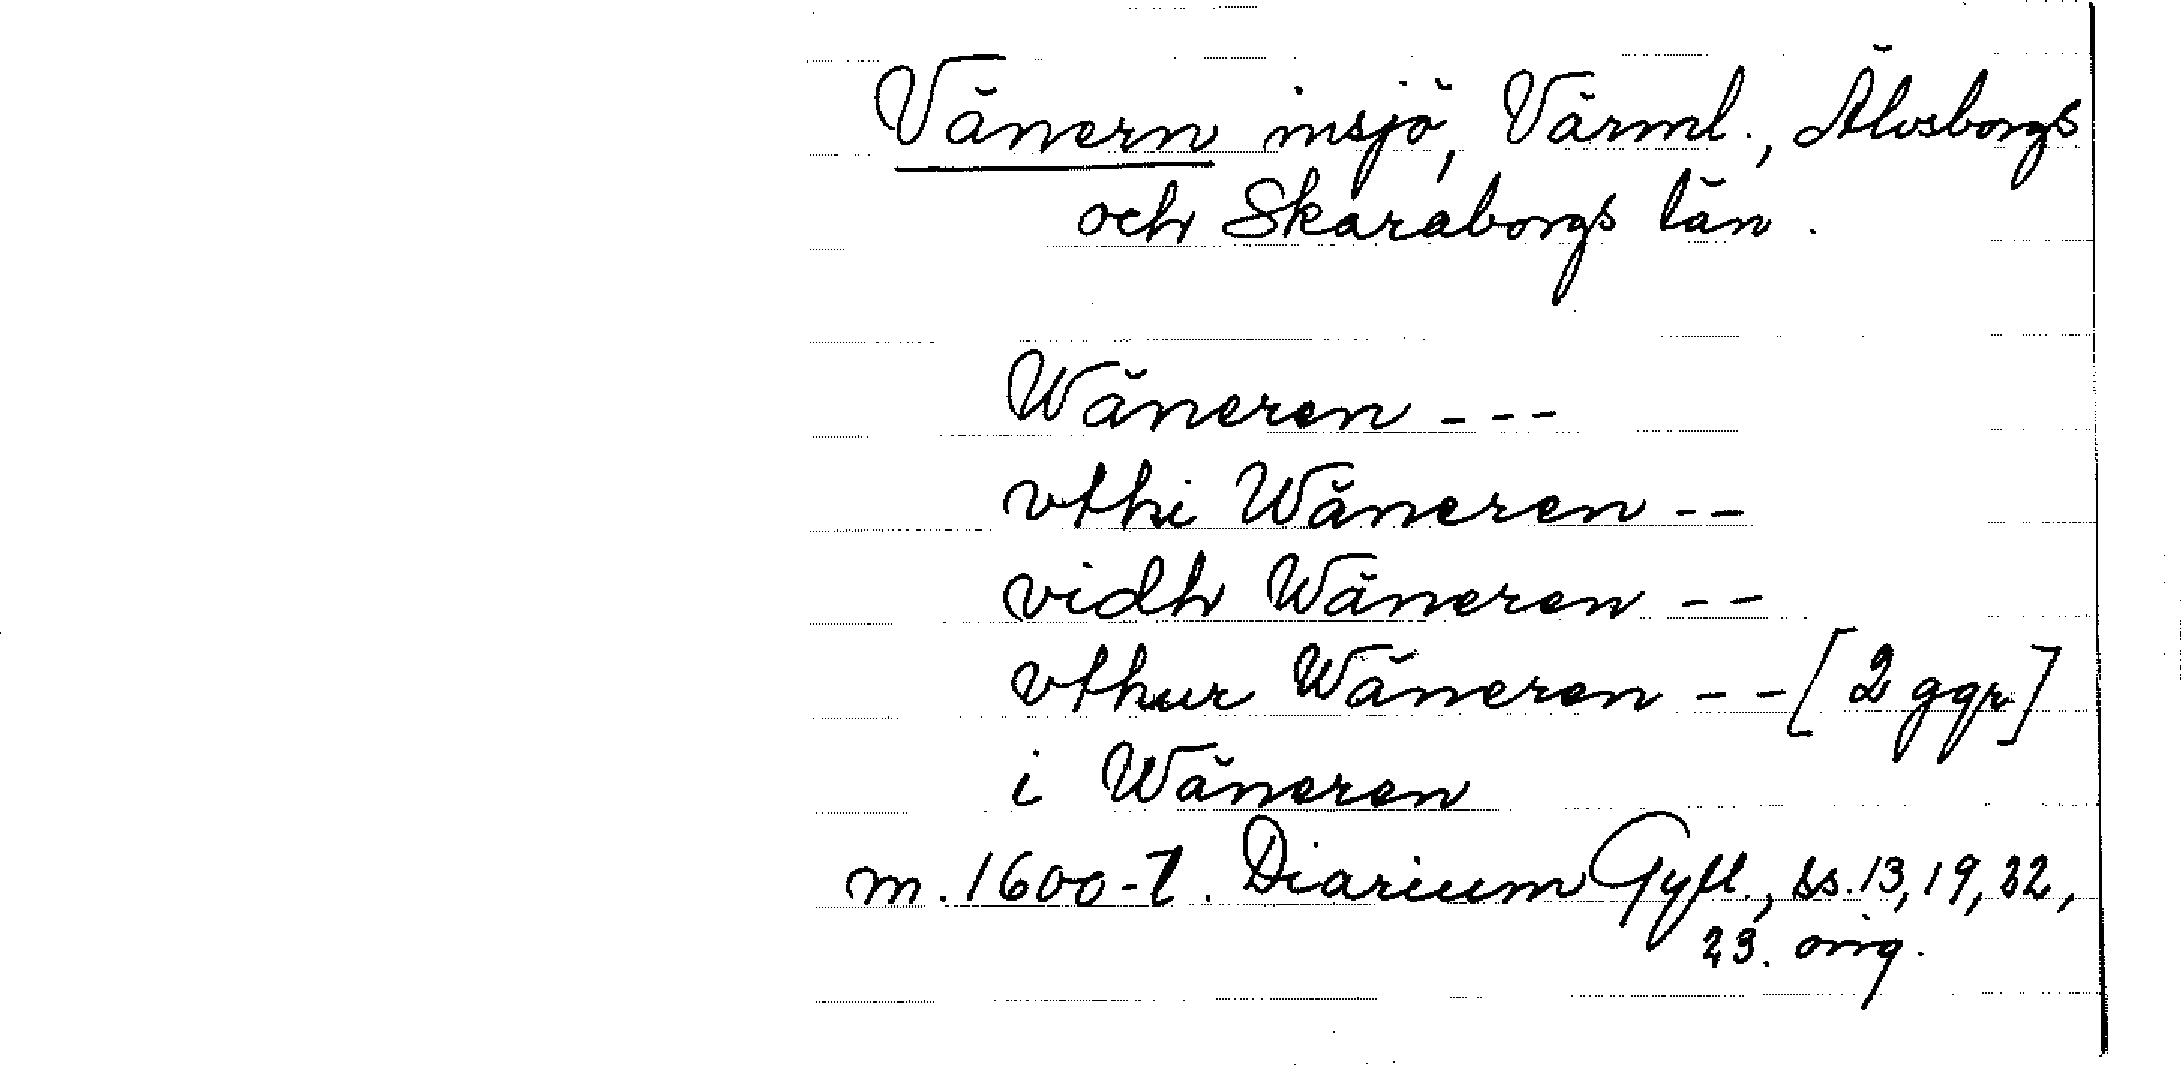 Vänern insjö, Värml., Älvsborgs
och Skaraborgs län.
Wäneren - - -
vthi Wäneren - -
vidh Wäneren - -
vthur Wäneren - - [2 ggr]
i Wäneren
m. 1600-t. Diarium Gyll., ss. 13, 19, 22,
23. orig.